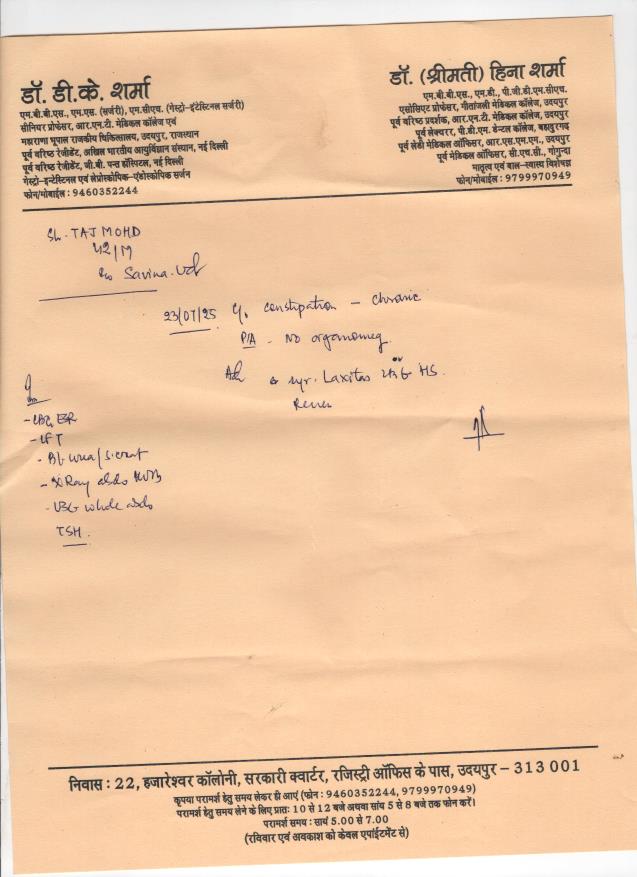 डॉ. डी.के. शर्मा
एम.बी.बी.एस., एम.एस. (सर्जरी), एम.सीएच. (गेस्ट्रो-इंटेस्टिनल सर्जरी)
सीनियर प्रोफेसर, आर.एन.टी. मेडिकल कॉलेज एवं
महाराणा भूपाल राजकीय चिकित्सालय, उदयपुर, राजस्थान
पूर्व वरिष्ठ रेजीडेंट, अखिल भारतीय आयुर्विज्ञान संस्थान, नई दिल्ली
पूर्व वरिष्ठ रेजीडेंट, जी.बी. पन्त हॉस्पिटल, नई दिल्ली
गेस्ट्रो-इन्टेस्टिनल एवं लेप्रोस्कोपिक-एंडोस्कोपिक सर्जन
फोन/मोबाईल : 9460352244
डॉ. (श्रीमती) हिना शर्मा
एम.बी.बी.एस., एम.डी., पी.जी.डी.एम.सीएच.
एसोसिएट प्रोफेसर, गीतांजली मेडिकल कॉलेज, उदयपुर
पूर्व वरिष्ठ प्रदर्शक, आर.एन.टी. मेडिकल कॉलेज, उदयपुर
पूर्व लेक्चरर, पी.डी.एम. डेन्टल कॉलेज, बहादुरगढ़
पूर्व लेडी मेडिकल ऑफिसर, आर.एस.एम.एम., उदयपुर
पूर्व मेडिकल ऑफिसर, सी.एच.सी., गोगुन्दा
मातृत्व एवं बाल-स्वास्थ्य विशेषज्ञ
फोन/मोबाईल : 9799970949
Sh. TAJ MOHD
42/M
R/o Savina. Udr
23/07/25 c/o constipation - chronic
P/A - No organomeg.
Adv syr. Laxitas HS.
Review
- CBC, ESR
- LFT
- Bl. urea/S. creat
- X Ray abdo KUB
- USG whole abdo
TSH.
निवास : 22, हजारेश्वर कॉलोनी, सरकारी क्वार्टर, रजिस्ट्री ऑफिस के पास, उदयपुर – 313 001
कृपया परामर्श हेतु समय लेकर ही आएं (फोन : 9460352244, 9799970949)
परामर्श हेतु समय लेने के लिए प्रातः 10 से 12 बजे अथवा सांय 5 से 8 बजे तक फोन करें।
परामर्श समय : सायं 5.00 से 7.00
(रविवार एवं अवकाश को केवल एपांईटमेंट से)